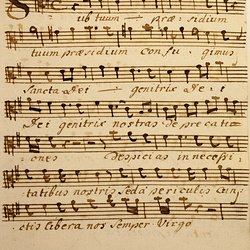 Sub tuum — præ - sidium
tuum præsidium confu - gimus
Sancta Dei — genitrix De - i
Dei genitrix nostras deprecati
ones despicias in necessi
tatibus nostris Sed a periculis cun
ctis libera nos Semper Virgo